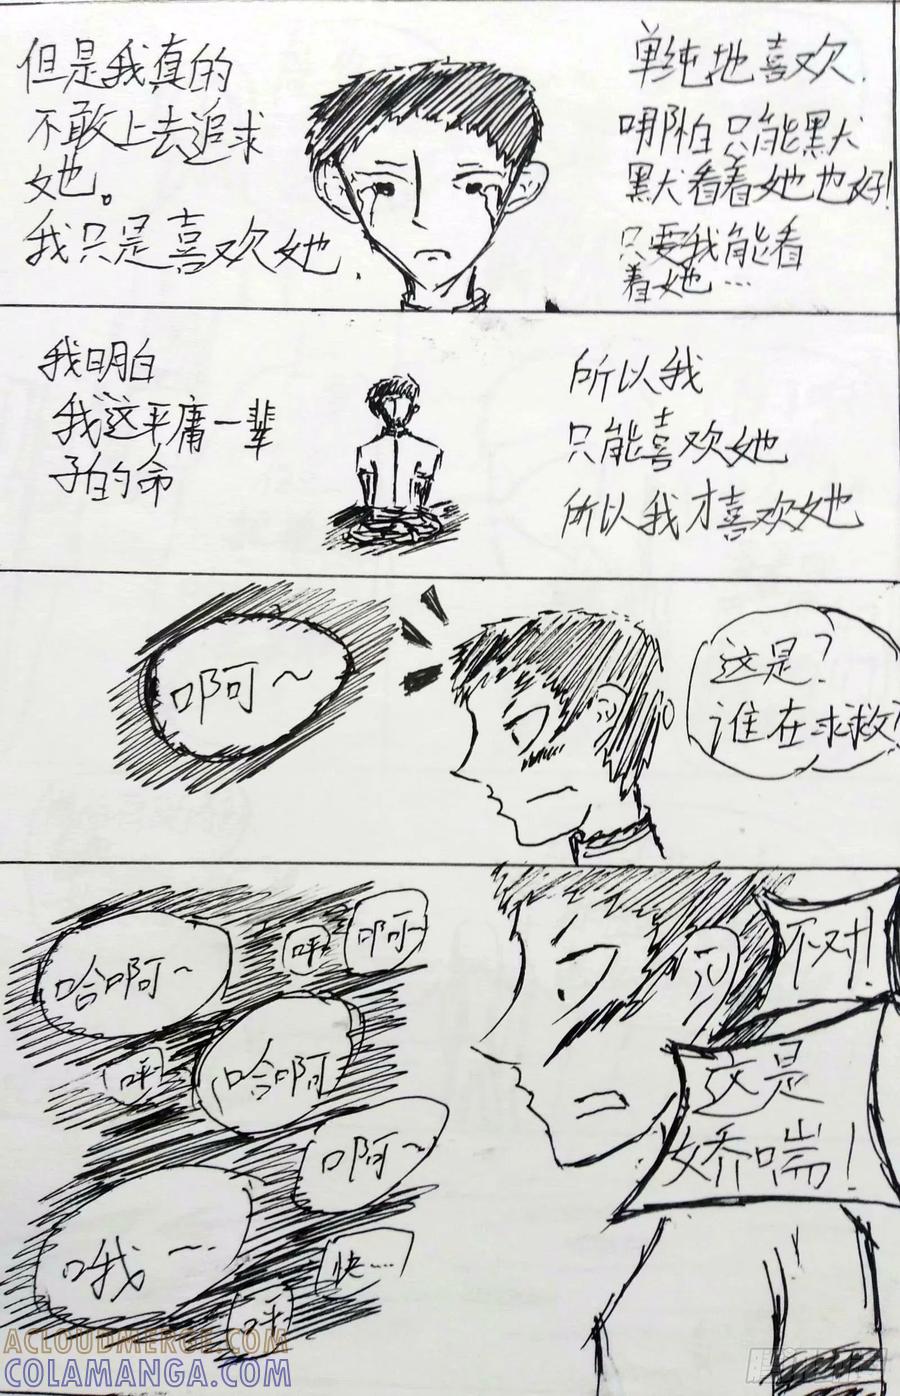 但是我真的
不敢上去追求
她。
我只是喜欢她.
单纯地喜欢.
哪怕只能默
默看着她也好!
只要我能看
着她…
我明白
我这平庸一辈
子的命
所以我
只能喜欢她
所以我才喜欢她
啊~
这是?
谁在求救?
哈啊~
呼
啊~
呼
哈啊
啊~
哦~
快...
呼
不对!
这是
娇喘!
ACLOUDMERGE.COM
COLAMANGA.COM